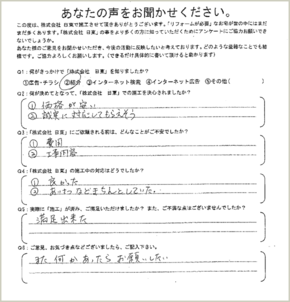 あなたの声をお聞かせください。
この度は、株式会社 日東で施工させて頂きありがとうございます。「リフォームが必要」なお宅が世の中にはまだまだ多くあります。「株式会社 日東」の事をより多くの方に知っていただくためにアンケートにご協力お願いできないでしょうか。
あなた様のご意見をお聞かせいただき、今後の活動に反映したいと考えております。どのような些細なことでも結構です。ご協力よろしくお願いします。(できるだけ具体的に書いて頂けると助かります)
Q1：何がきっかけで「株式会社 日東」を知りましたか？
①広告・チラシ ②紹介 ③インターネット検索 ④インターネット広告 ⑤その他( )
Q2：何が決めてとなって、「株式会社 日東」での施工を決心されましたか？
① 価格が安い
② 誠実に対応してもらえそう
Q3：「株式会社 日東」にご依頼される前は、どんなことがご不安でしたか？
① 費用
② 工事内容
Q4：「株式会社 日東」の施工中の対応はどうでしたか？
① 良かった
② あいさつなどきちんとしていた。
Q5：実際に「施工」が済み、ご満足いただけましたか？また、ご不満な点はございませんでしたか？
満足出来た
Q6：ご意見、お気づき点などございましたら、ご記入下さい。
また何かあったらお願いしたい